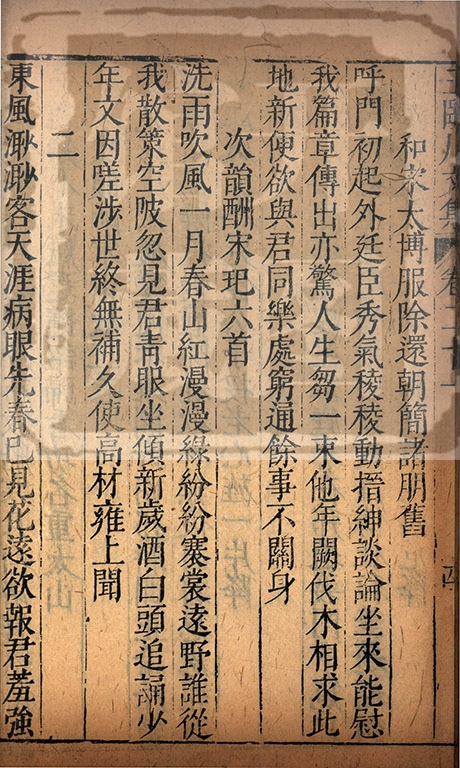 和宋太博服除還朝簡諸朋舊
呼門初起外廷臣秀氣稜稜動搢紳談論坐來能慰
我篇章傳出亦驚人生芻一束他年闕伐木相求此
地新便欲與君同樂處窮通餘事不關身
次韻酬宋玘六首
洗雨吹風一月春山紅漫漫綠紛紛褰裳遠野誰從
我散策空陂忽見君靑眼坐傾新歲酒白頭追誦少
年文因嗟涉世終無補久使高材雍上聞
二
東風渺渺客天涯病眼先春已見花遠欲報君羞強